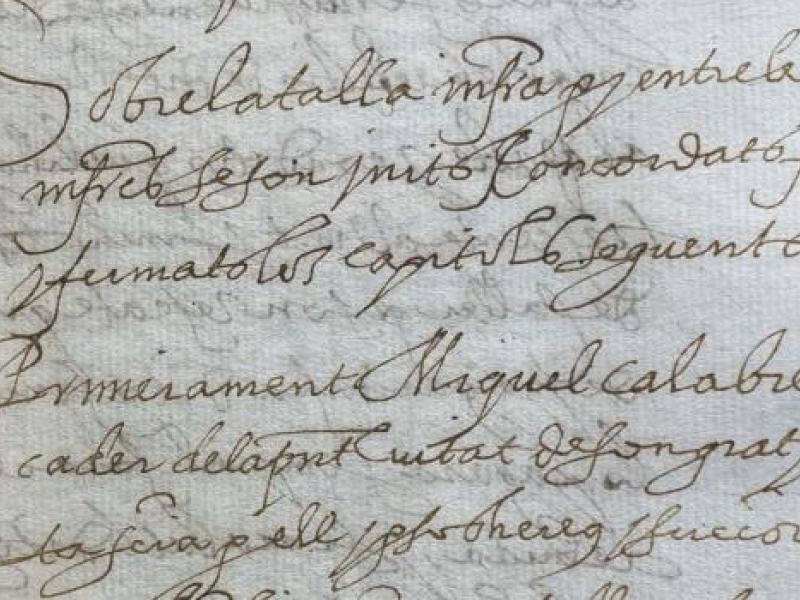 Sobre la talla infra py entre la
infres se son jnits Concordats
y fermats los capitols seguents
Primerament Miquel Calabre
cader de la pnt Ciutat de son grat y
ta scia p ell y sos hereus y succes